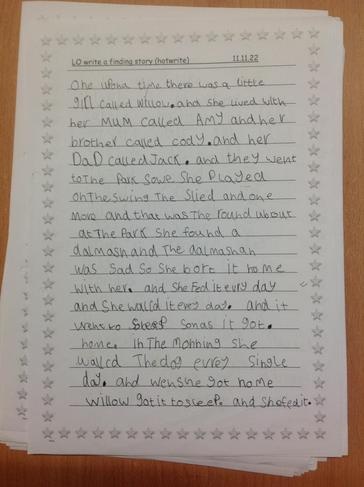 LO write a finding story (hotwrite) 11.11.22
One upna time there was a little
girl called Willow. and she lived with
her MUM called AMY and her
brother called cody. and her
DaD called Jack. and they went
to The Park sowe she Played
on The swing The Slied and one
more and that was The round about
at The Park she found a
dalmashand The dalmashan
was sad So She bort it home
with her. and she fed it evry day
and She walcd it evrey day. and it
wens to sleep sonas it got.
home. in The morning she
walcd The dog evrey single
day. and wen she got home
willow got it to sleep. and she fed it.